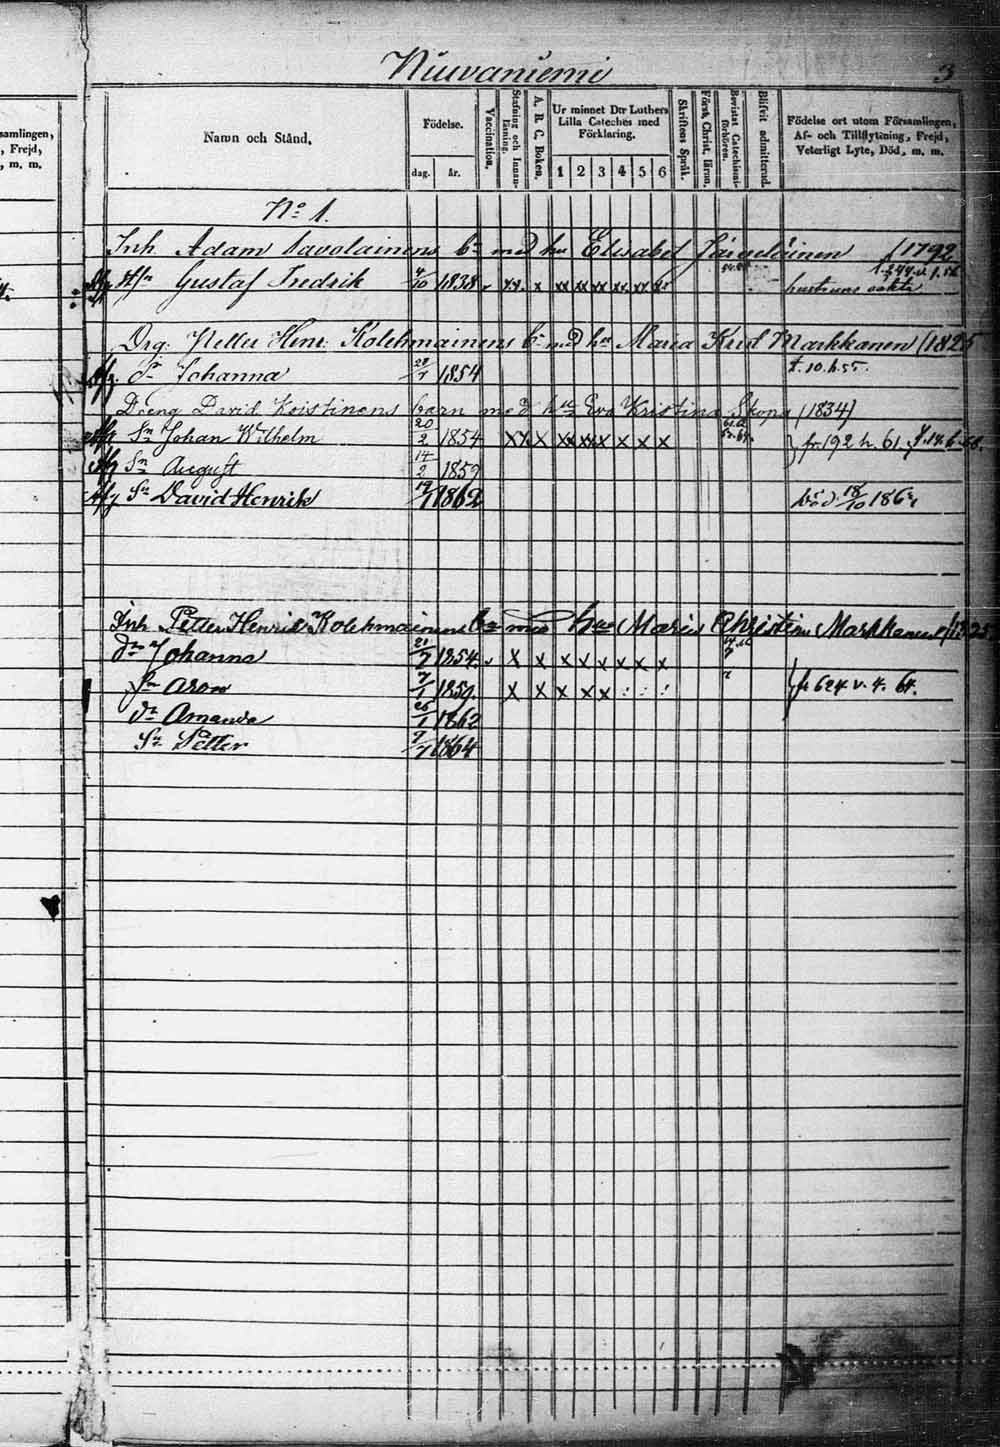 samlingen,
, Frejd,
, m. m.
Niuvaniemi
3
Namn och Stånd.
Födelse.
dag.
år.
Vaccination.
Stafning och Innan-
läsning.
A. B. C. Boken.
Ur minnet Dtr Luthers
Lilla Cateches med
Förklaring.
1 2 3 4 5 6
Skriftens Språk.
Först. Christ. läran.
Bevistat Catechismi-
förhören.
Blifvit admitterad.
Födelse ort utom Församlingen,
Af- och Tillflyttning, Frejd,
Veterligt Lyte, Död, m. m.
No 1.
Inh. Adam Savolainens bn med hu Elisabet (1792
Gustaf Fredrik 4/10 1838 x xx xx xx xx xx hustruns oäkta
Drg. Petter Henr. Kolehmainens bn med hu Maria Krist. Markkanen (1825
dr Johanna 22/7 1854 †. 10. 6. 55.
Dreng David Koistinens barn med hu Eva Kristina Skopa (1834)
Sn Johan Wilhelm 20/2 1854 xx x xx xx x x x x fr. 192 h. 61.
Sn August 14/2 1859
Sn David Henrik 19/7 1862 död 18/10 186
Inh. Petter Henrik Kolehmainens bn med hu Maria Christina Markkanen (1825)
dr Johanna 22/7 1854. x x x x x x x x
Sn Aron 7/1 1859. x x x x x fr 624 v. 4. 64.
dr Amanda 26/1 1862
Sn Petter 9/7 1864